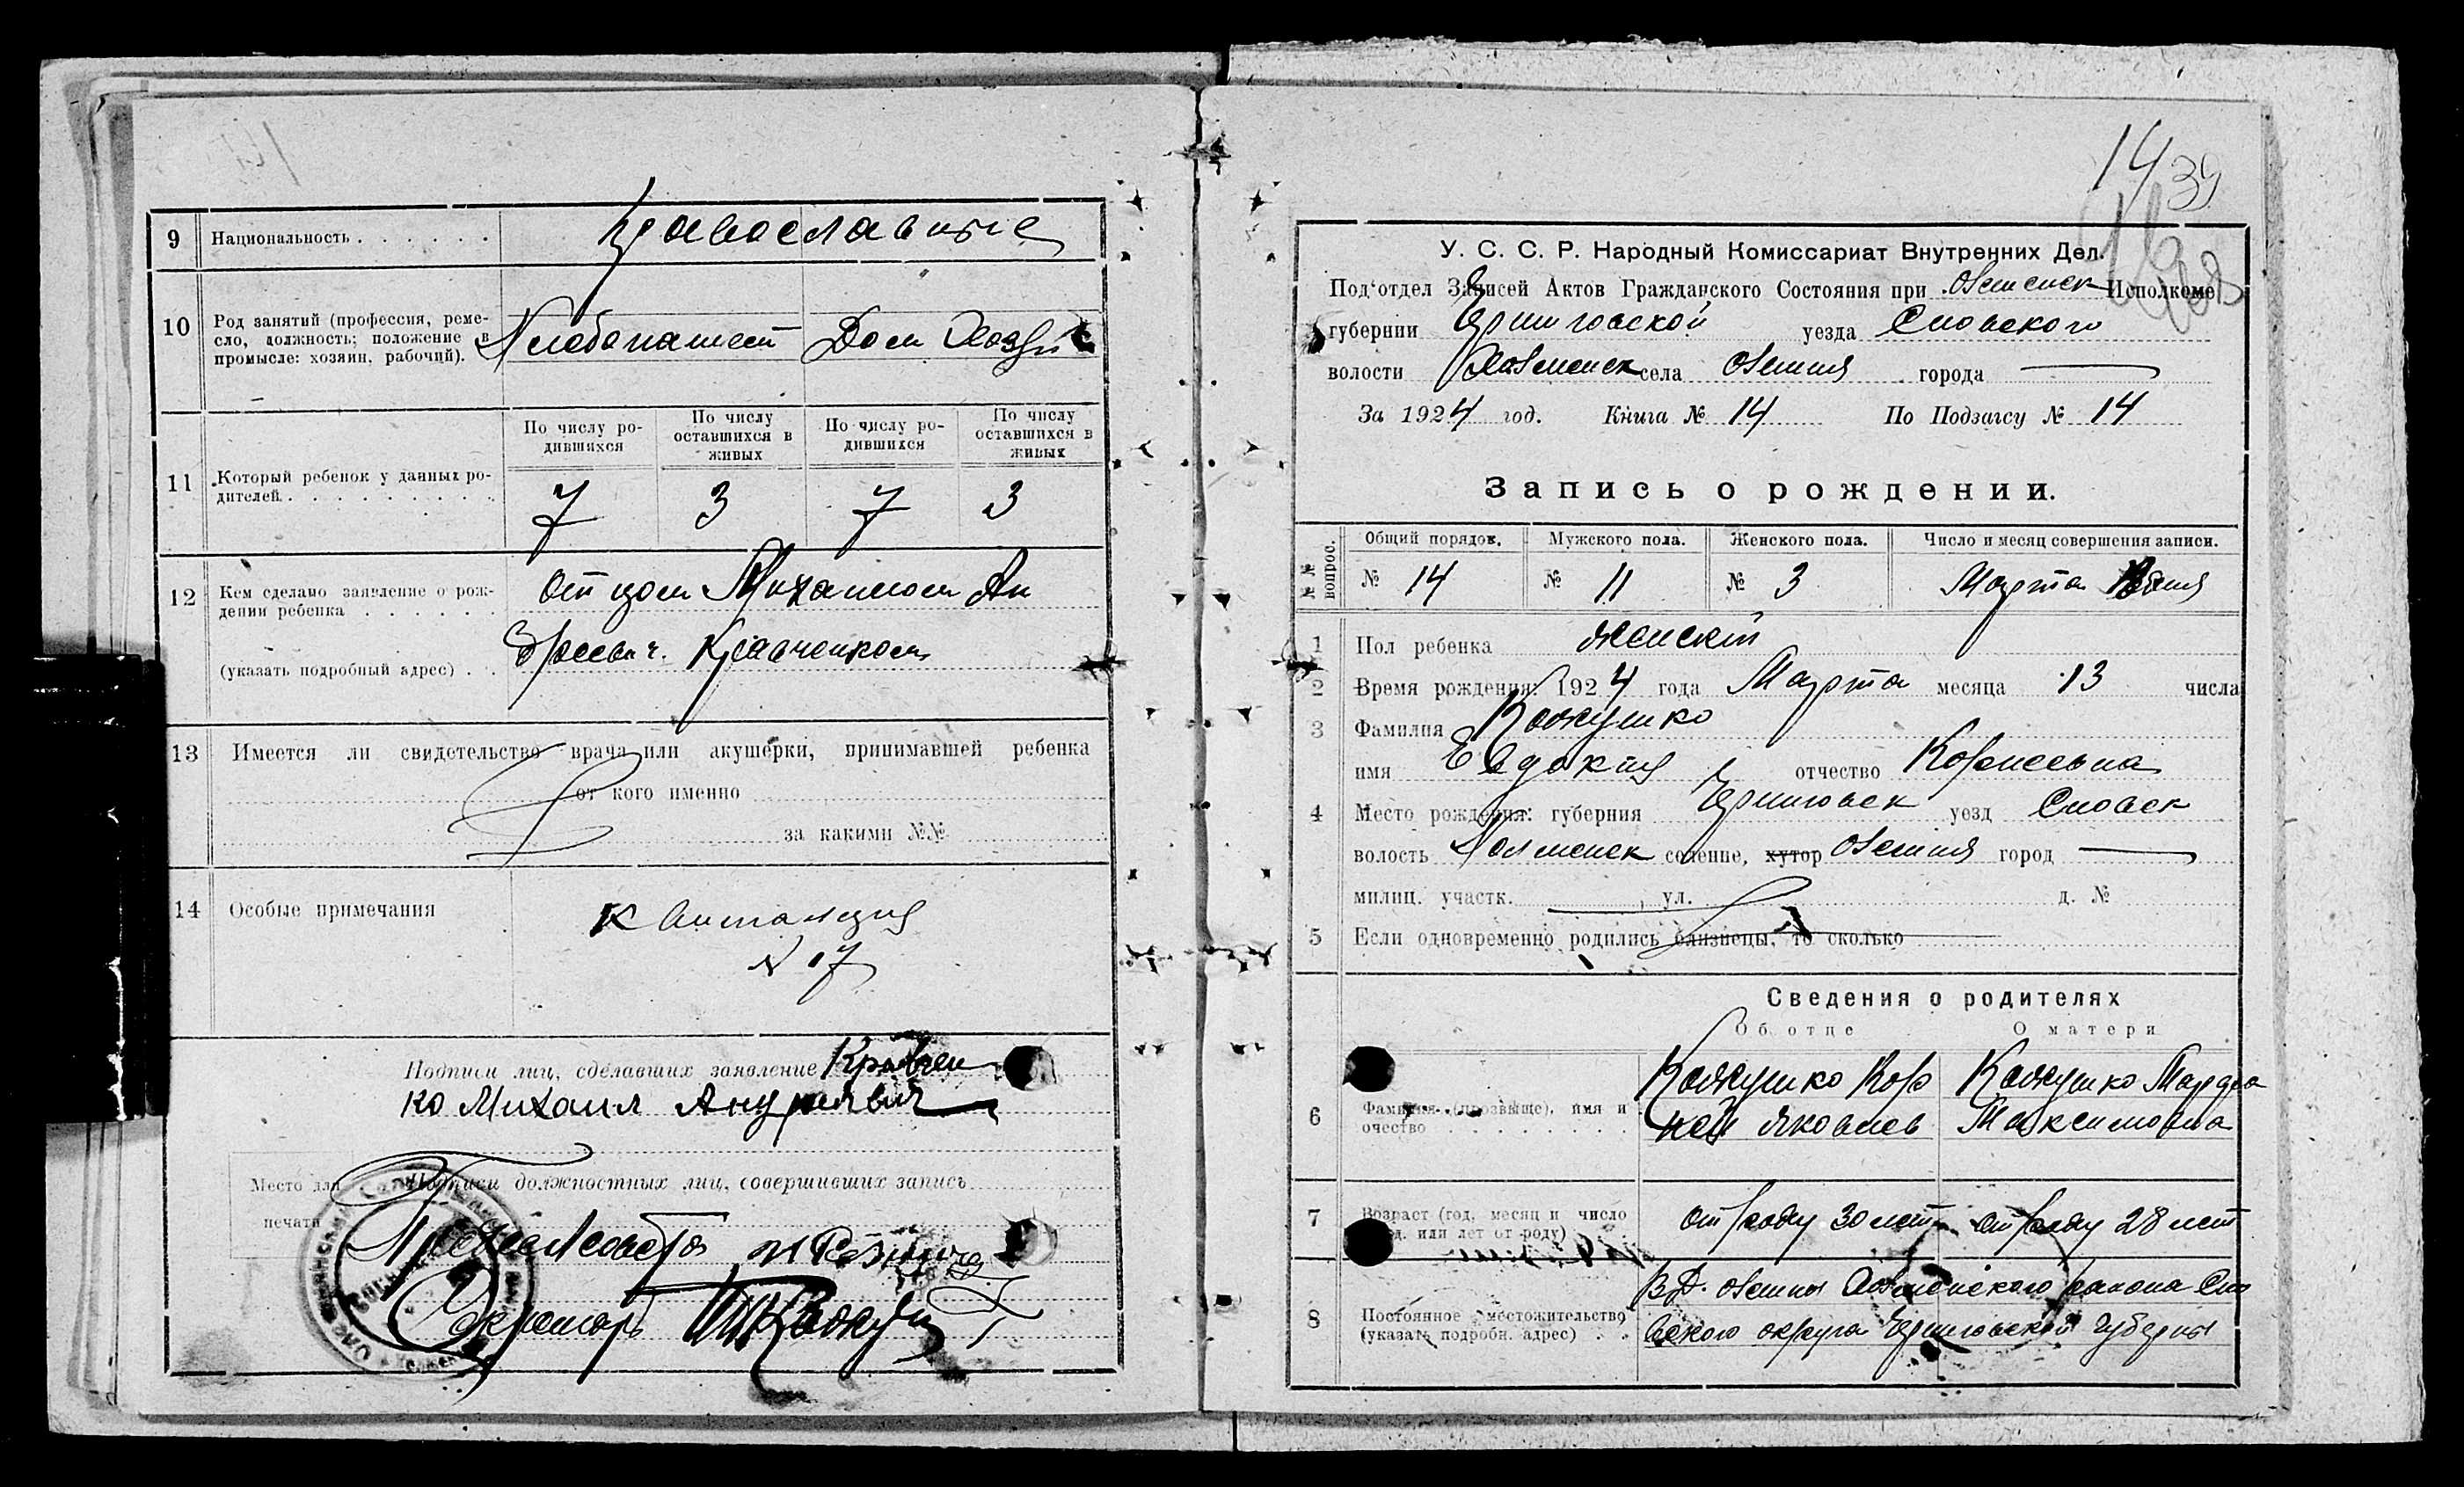 9 Национальность Православные
10 Род занятий (профессия, реме-
сло, должность; положение в
промысле: хозяин, рабочий). Хлебопашест Дом Хозяй
По числу ро-
дившихся
По числу
оставшихся в
живых
По числу ро-
дившихся
По числу
оставшихся в
живых
11 Который ребенок у данных ро-
дителей 7 3 7 3
12 Кем сделано заявление о рож-
дении ребенка
Отцом Михаилом Ан
дреевич. Кравченком
(указать подробный адрес)
13 Имеется ли свидетельство врача или акушерки, принимавшей ребенка
от кого именно
за какими №№
14 Особые примечания Квитанция
N 17
Подписи лиц, сделавших заявление Кравчен
ко Михаил Андреявич
Место для
печати
Подписи должностных лиц, совершивших запись
Секретарь
14
39
У. С. С. Р. Народный Комиссариат Внутренних Дел.
Под'отдел Записей Актов Гражданского Состояния при Исполкоме
губернии Черниговской уезда Сновского
волости села города —
За 1924 год. Книга № 14 По Подзагсу № 14
Запись о рождении.
№№ вопрос. Общий порядок. Мужского пола. Женского пола. Число и месяц совершения записи.
№ 14 № 11 № 3 Марта
1 Пол ребенка женскій
2 Время рождения: 1924 года Марта месяца 13 числа
3 Фамилия Кожушко
имя Евдокия отчество Корнеевна
4 Место рождения: губерния Черниговск уезд Сновск
волость селение, хутор город —
милиц. участк. , ул. д. №
5 Если одновременно родились близнецы, то сколько
Сведения о родителях
Об отце О матери
6 Фамилия (прозвище), имя и
очество
Кожушко Кор
ней Яковлев
Кожушко Марфа
Максимовна
7 Возраст (год, месяц и число
или лет от роду)
от роду 30 лет от роду 28 лет
8 Постоянное местожительство
(указать подробн. адрес)
района Сно
вского округа Черниговской Губерны